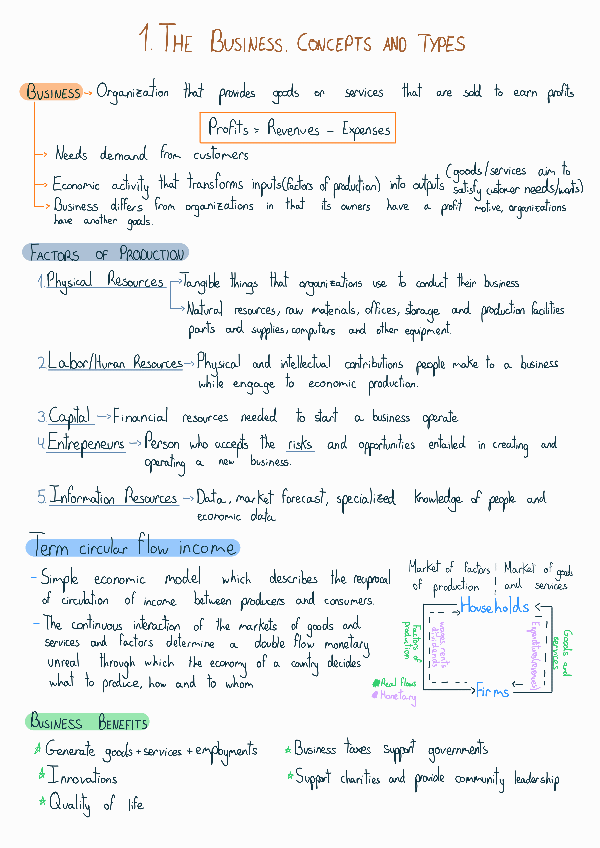 1. THE BUSINESS. CONCEPTS AND TYPES
BUSINESS → Organization that provides goods or services that are sold to earn profits
Profits = Revenues - Expenses
→ Needs demand from customers
→ Economic activity that transforms inputs (factors of production) into outputs (goods/services aim to
satisfy customer needs/wants)
→ Business differs from organizations in that its owners have a profit motive, organizations
have another goals.
FACTORS OF PRODUCTION
1. Physical Resources → Tangible things that organizations use to conduct their business
→ Natural resources, raw materials, offices, storage and production facilities
parts and supplies, computers and other equipment.
2. Labor/Human Resources → Physical and intellectual contributions people make to a business
while engage to economic production.
3. Capital → Financial resources needed to start a business operate
4. Entrepeneurs → Person who accepts the risks and opportunities entailed in creating and
operating a new business.
5. Information Resources → Data, market forecast, specialized knowledge of people and
economic data
Term circular flow income
- Simple economic model which describes the reciprocal
of circulation of income between producers and consumers.
- The continuous interaction of the markets of goods and
services and factors determine a double flow monetary
unreal through which the economy of a country decides
what to produce, how and to whom
Market of factors
of production
Market of goods
and services
Households
Factors of
production
wages, rents
dividends
Expenditure
Goods and
services
Real flows
Monetary
Firms
BUSINESS BENEFITS
* Generate goods + services + employments
* Innovations
* Quality of life
* Business taxes support governments
* Support charities and provide community leadership